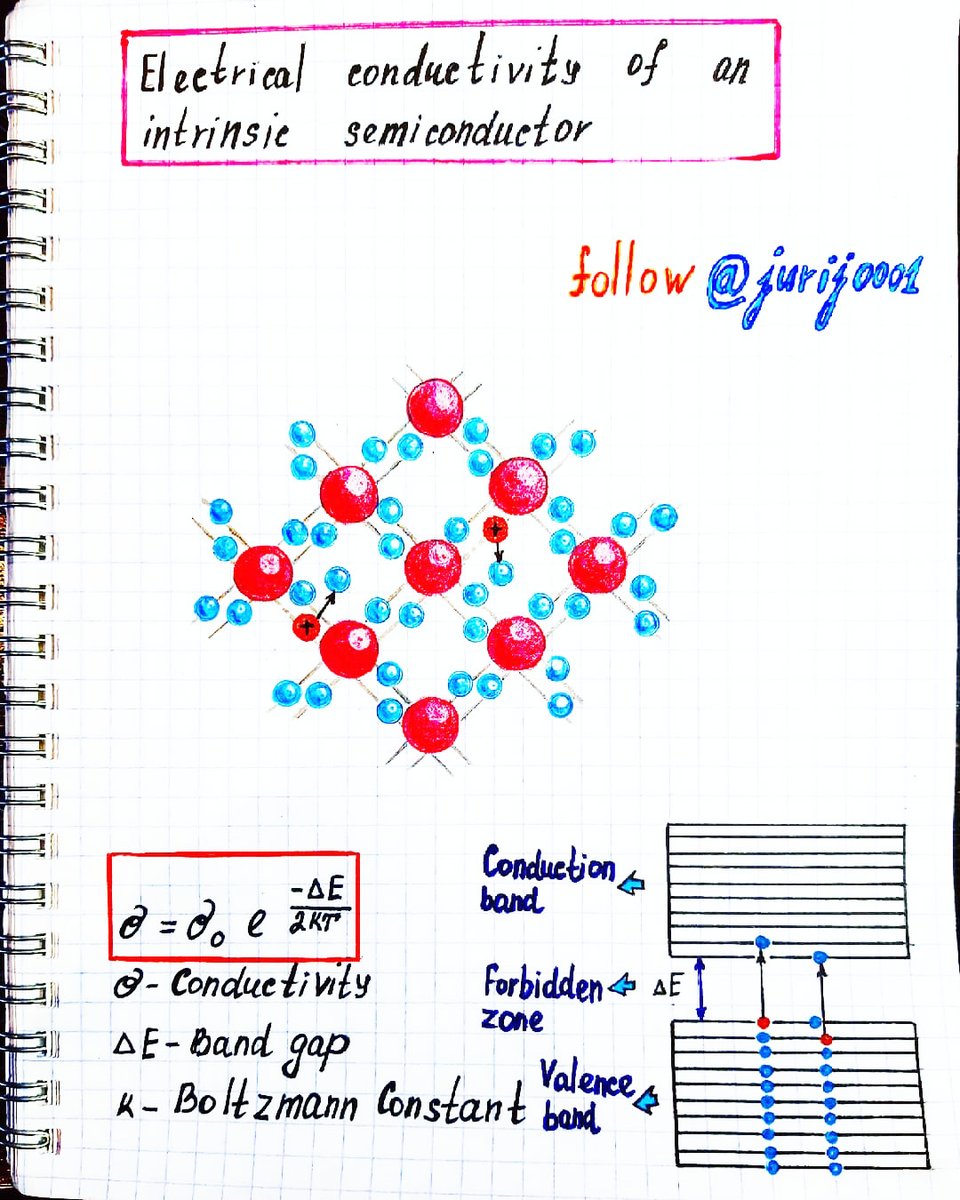 Electrical conductivity of an
intrinsic semiconductor
follow @jurij0001
+
+
σ = σ₀ e^(-ΔE/2KT)
σ - Conductivity
ΔE - Band gap
K - Boltzmann Constant
Conduction
band
Forbidden
zone
ΔE
Valence
band